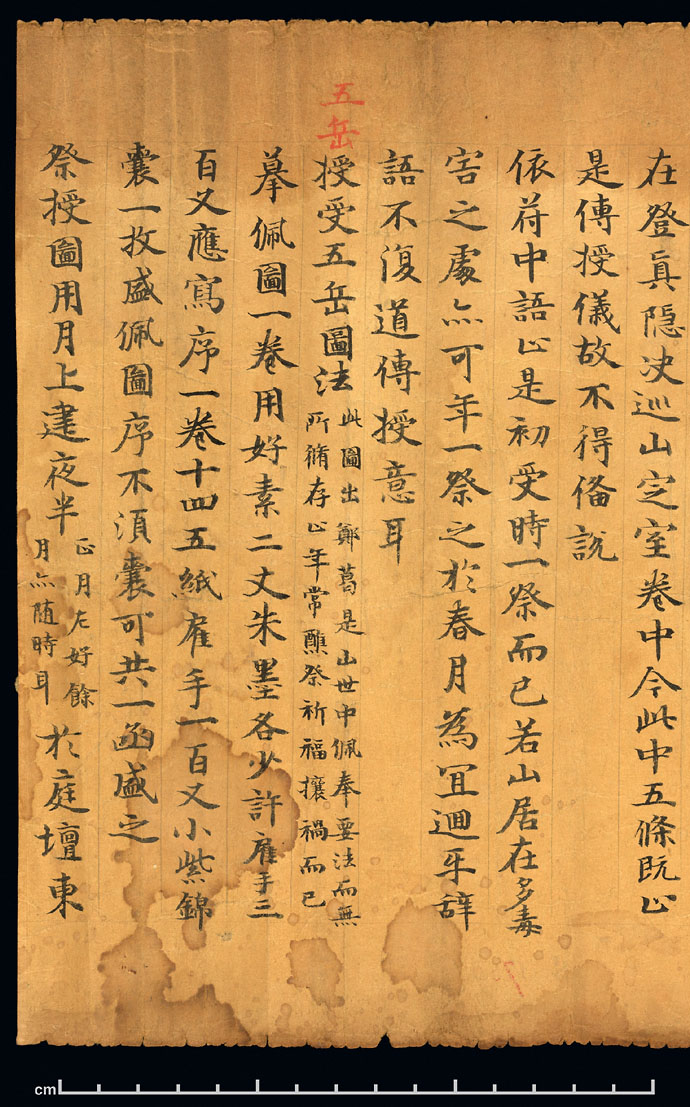 在登真隠决巡山定室卷中今此中五條既止
是傳授儀故不得俻説
依苻中語止是初受時一祭而已若山居在多毒
害之處亦可年一祭之於春月為冝迴牙辞
語不復道傳授意耳
五岳
授受五岳圖法
此圖出鄭葛是山世中佩奉要法而無
所脩存止年常醮祭祈福攘禍而已
摹佩圖一卷用好素二丈朱墨各少許雇手三
百又應寫序一卷十四五紙雇手一百又小紫錦
囊一枚盛佩圖序不湏囊可共一函盛之
祭授圖用月上建夜半
正月尤好餘
月亦随時耳
於庭壇東
cm